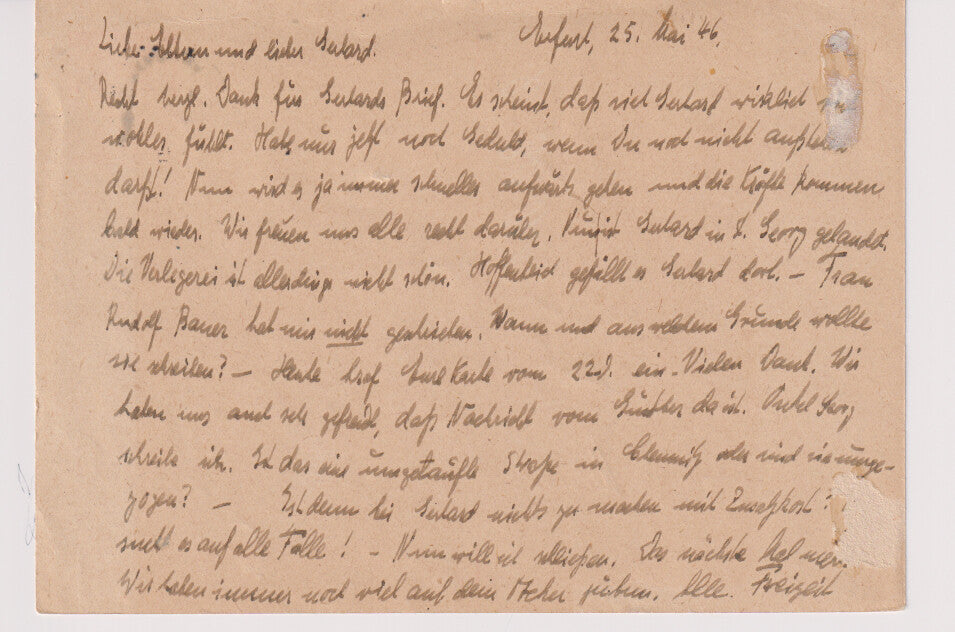 Erfurt, 25. Mai 46.
Liebe Eltern und lieber Gerhard.
Recht herzl. Dank für Gerhards Brief. Es scheint, daß sich Gerhard wirklich
wohler fühlt. Habe nur jetzt noch Geduld, wenn Du noch nicht aufstehen
darfst! Nun wird es ja immer schneller aufwärts gehen und die Kräfte kommen
bald wieder. Wir freuen uns alle recht darüber. Nun ist Gerhard in St. Georg gelandet.
Die Verlegerei ist allerdings nicht schön. Hoffentlich gefällt es Gerhard dort. – Frau
Rudolf Bauer hat mir nicht geschrieben. Wann und aus welchem Grunde wollte
sie schreiben? – Heute traf Eure Karte vom 22.5. ein. Vielen Dank. Wir
haben uns auch sehr gefreut, daß Nachricht vom Günther da ist. Onkel Georg
schreibe ich. Ist das eine umgetaufte Straße in Chemnitz oder sind sie umge-
zogen? – Ist denn bei Gerhard nichts zu machen mit Zusatzkost?
sucht es auf alle Fälle! – Nun will ich schließen. Das nächste Mal mehr.
Wir haben immer noch viel auf dem Acker zu tun. Alle Freizeit